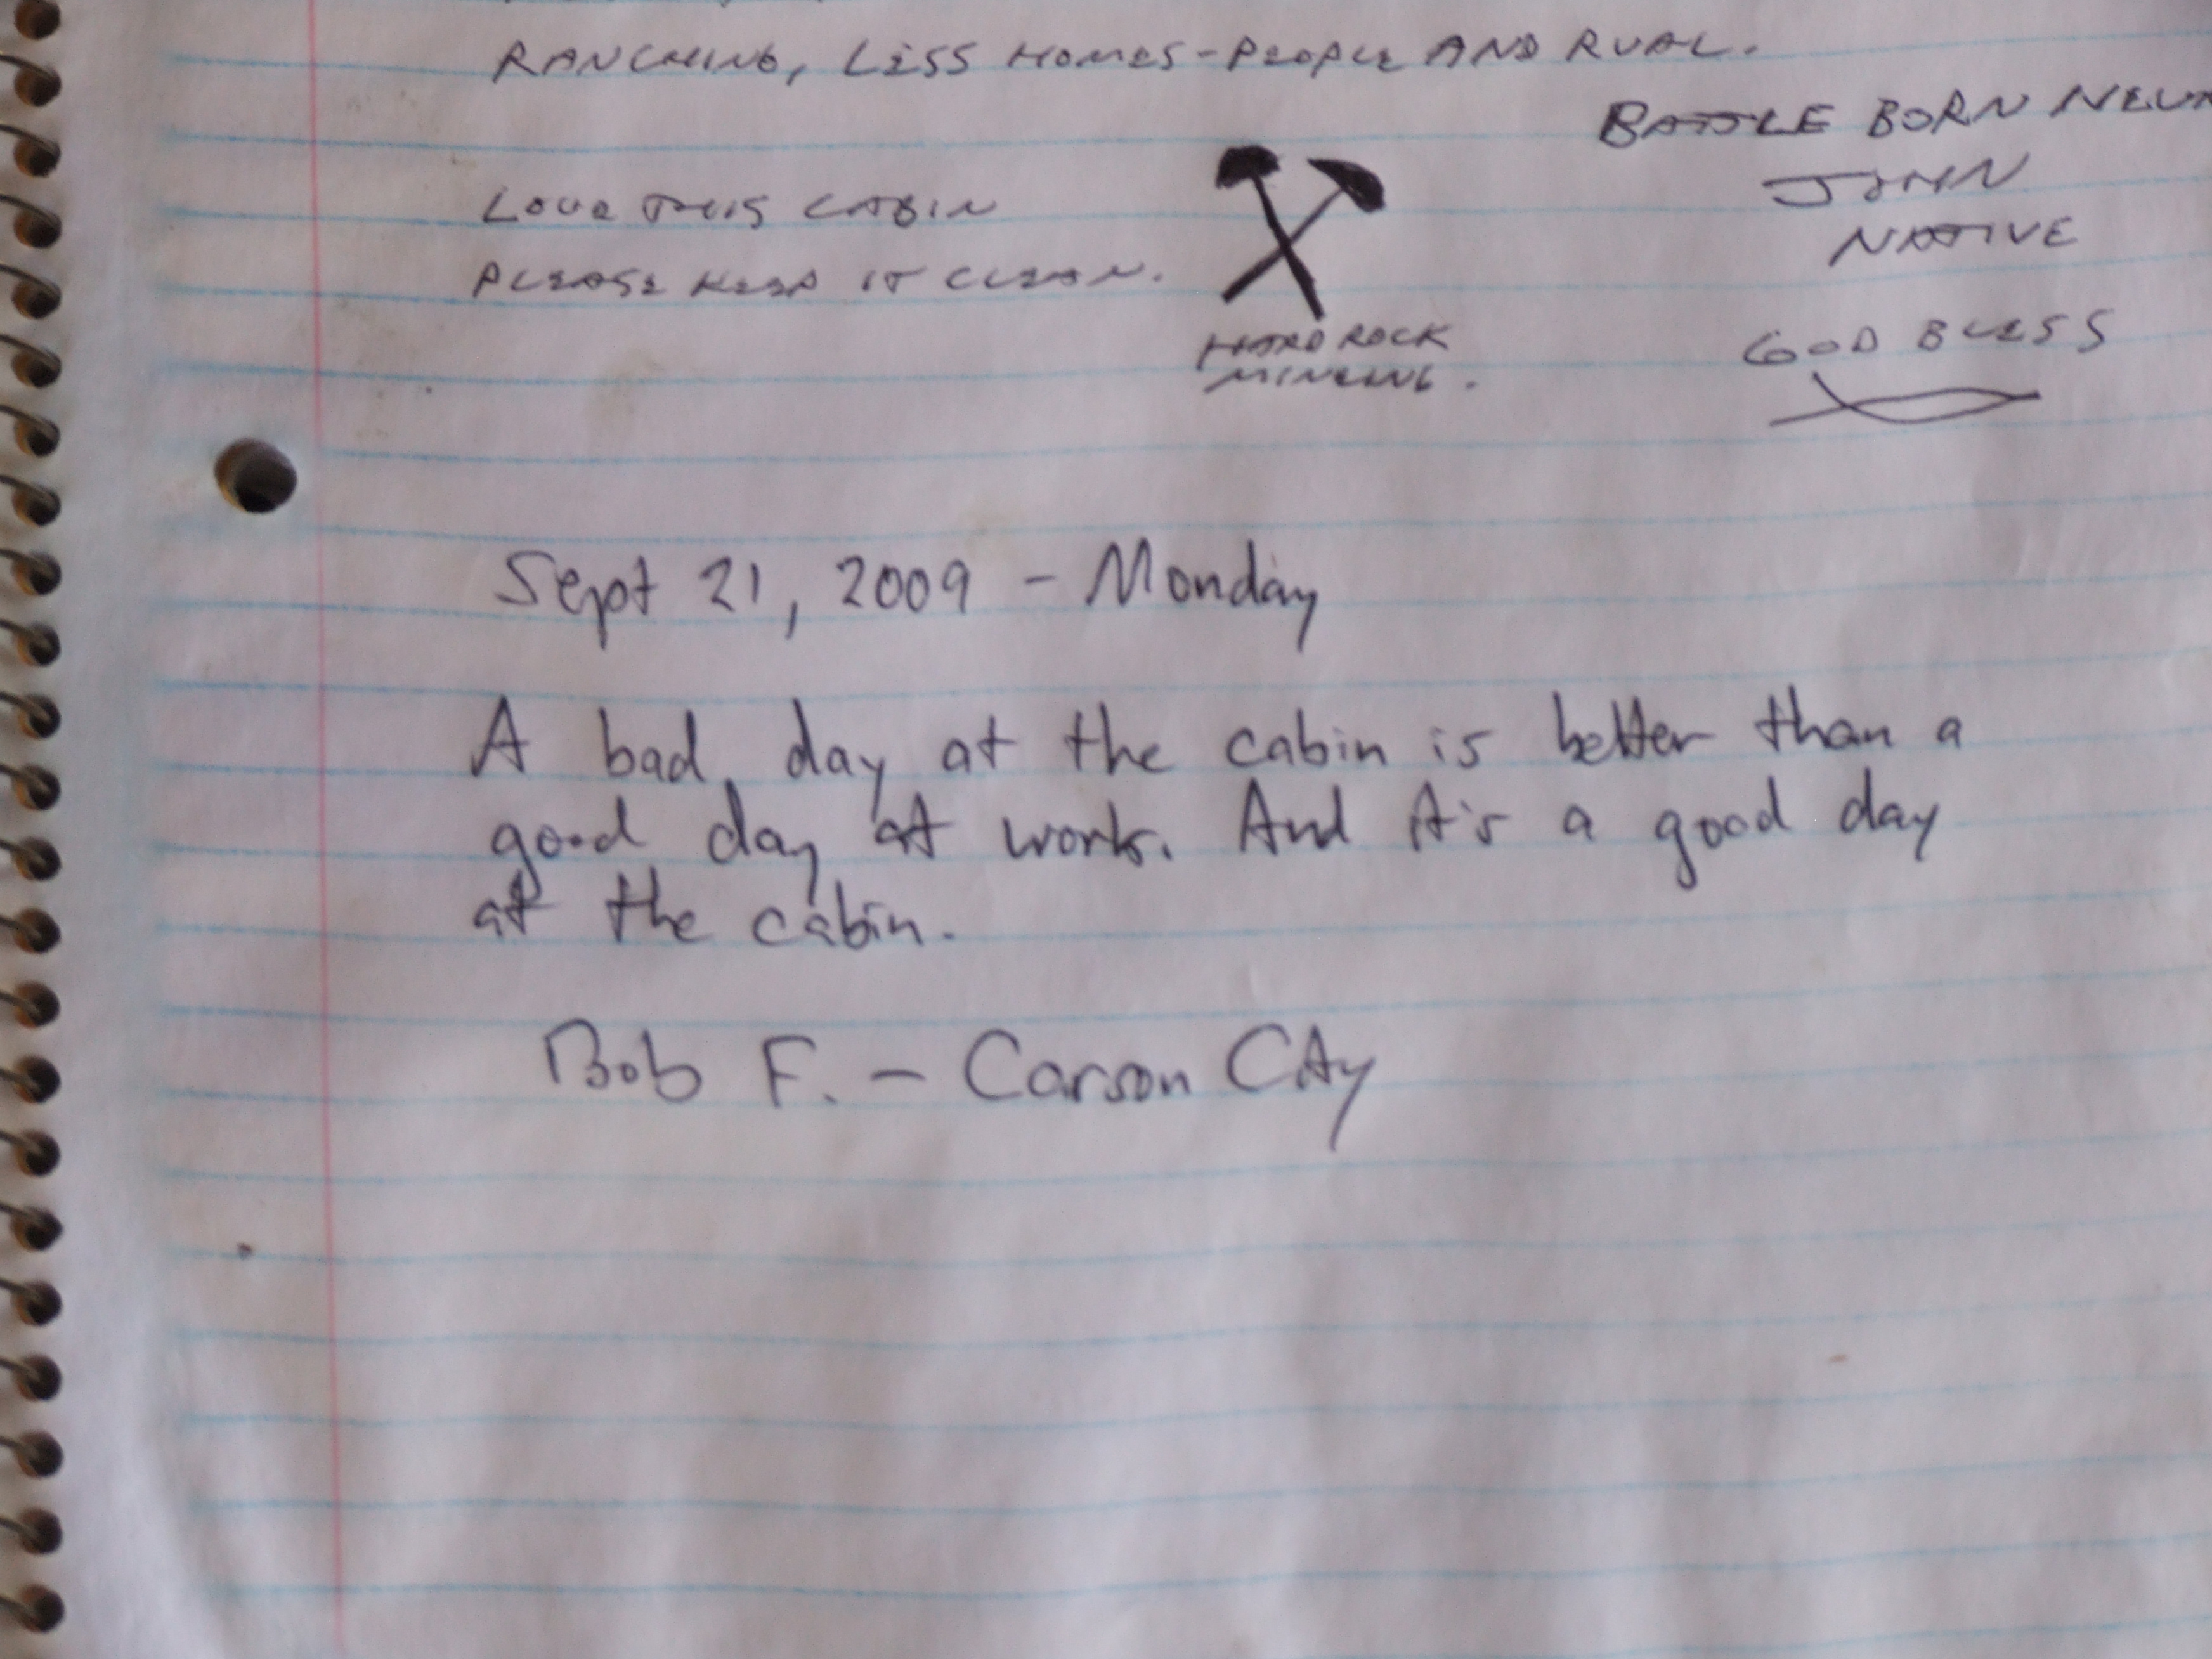 RANCHING, LESS HOMES-PEOPLE AND RUAL.
BATTLE BORN
JOHN
NATIVE
LOVE THIS CABIN
PLEASE KEEP IT CLEAN.
HARD ROCK
MINEING.
GOD BLESS
Sept 21, 2009 - Monday
A bad day at the cabin is better than a
good day at work. And it's a good day
at the cabin.
Bob F. - Carson City